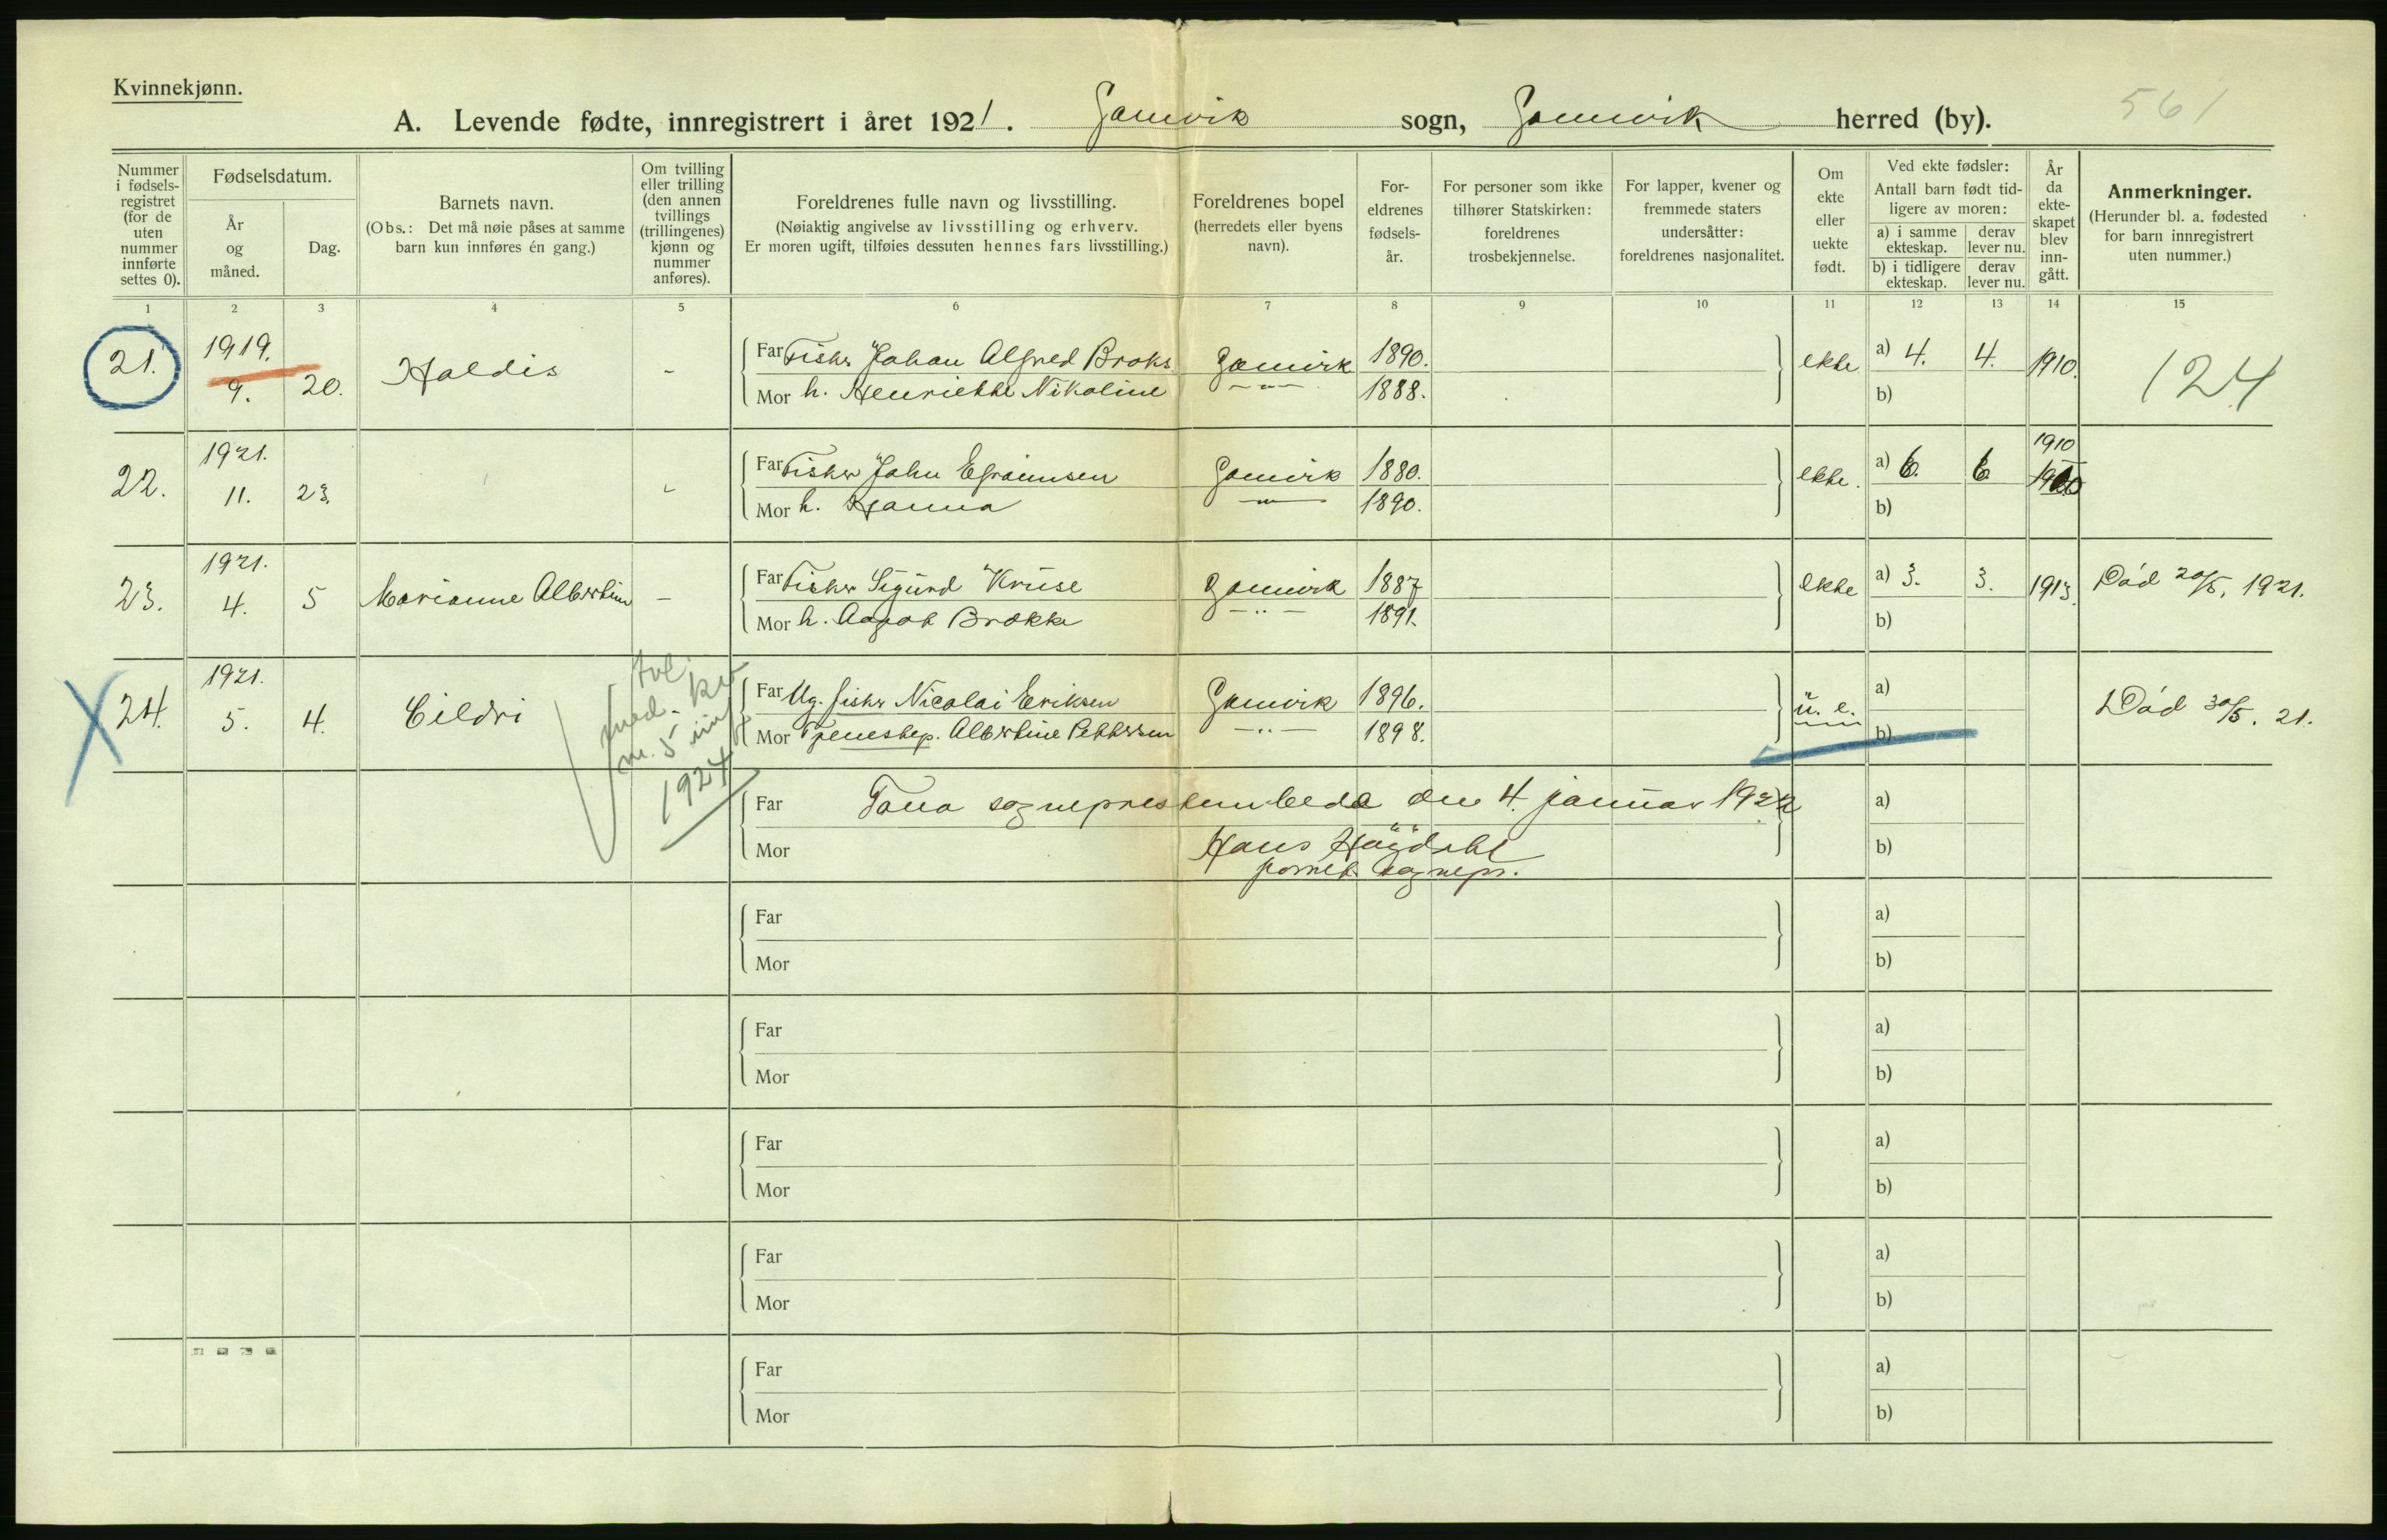 Kvinnekjønn.
A. Levende fødte, innregistrert i året 1921. Gamvik sogn, Gamvik herred (by).
561
Nummer i fødselsregistret (for de uten nummer innførte settes 0).
Fødselsdatum.
År og måned.
Dag.
Barnets navn.
(Obs.: Det må nøie påses at samme barn kun innføres én gang.)
Om tvilling eller trilling (den annen tvillings (trillingenes) kjønn og nummer anføres).
Foreldrenes fulle navn og livsstilling.
(Nøiaktig angivelse av livsstilling og erhverv.
Er moren ugift, tilføies dessuten hennes fars livsstilling.)
Foreldrenes bopel
(herredets eller byens navn).
Foreldrenes fødselsår.
For personer som ikke tilhører Statskirken: foreldrenes trosbekjennelse.
For lapper, kvener og fremmede staters undersåtter: foreldrenes nasjonalitet.
Om ekte eller uekte født.
Ved ekte fødsler:
Antall barn født tidligere av moren:
a) i samme ekteskap.
derav lever nu.
b) i tidligere ekteskap.
derav lever nu.
År da ekteskapet blev inngått.
Anmerkninger.
(Herunder bl. a. fødested for barn innregistrert uten nummer.)
1 2 3 4 5 6 7 8 9 10 11 12 13 14 15
21. 1919. 9. 20. Haldis -
Far Fisker Johan Alfred Broks Gamvik 1890. ekte a) 4. 4. 1910. 124
Mor h. Henriette Nikoline -"- 1888. b)
22. 1921. 11. 23. -
Far Fisker John Efraimsen Gamvik 1880. ekte. a) 6. 6 1910
Mor h. Hanna -"- 1890. b)
23. 1921. 4. 5 Marianne Albertine -
Far Fisker Sigurd Kruse Gamvik 1887 ekte a) 3. 3. 1913. Død 20/5. 1921.
Mor h. Aagot Brokke -"- 1891. b)
24. 1921. 5. 4. Eildri
tvl. med. kv nr. 5 1924
Far Ug. fisker Nicolai Eriksen Gamvik 1896. u. e. a) Død 30/5. 21.
Mor Tjenestep. Albertine Pettersen -"- 1898. b)
Far Tana sogneprestembede den 4. januar 1922 a)
Mor Hans Høgdahl b)
sognepr.
Far a)
Mor b)
Far a)
Mor b)
Far a)
Mor b)
Far a)
Mor b)
Far a)
Mor b)